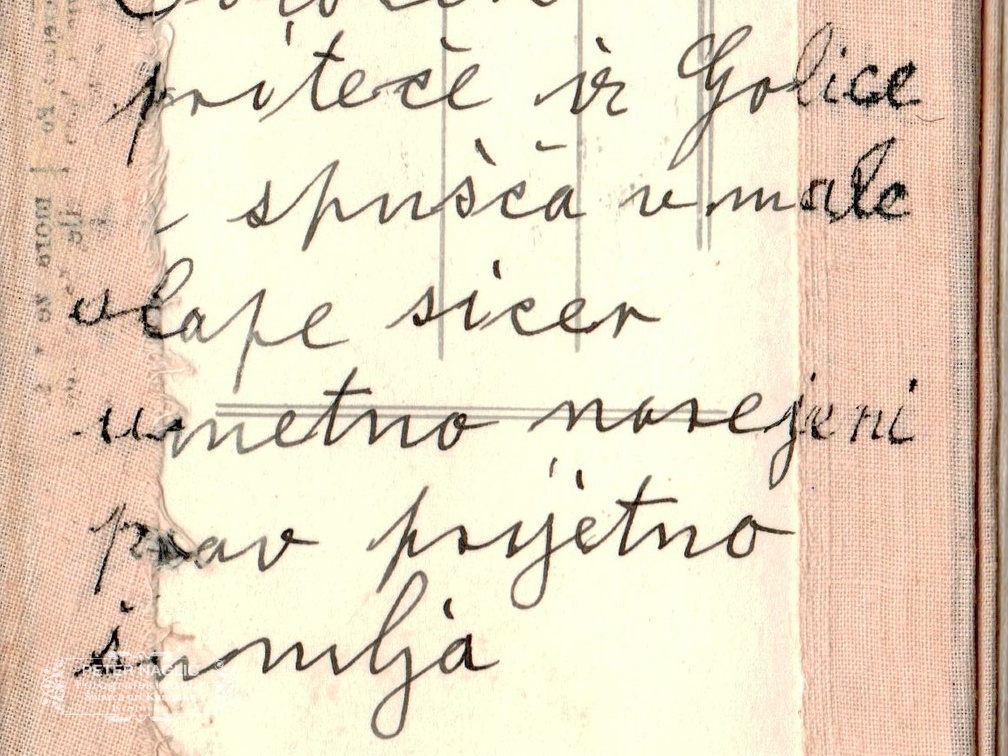 priteče iz Golice
spušča v male
slape sicer
umetno narejeni
prav prijetno
šumlja
PETER NAGLIČ